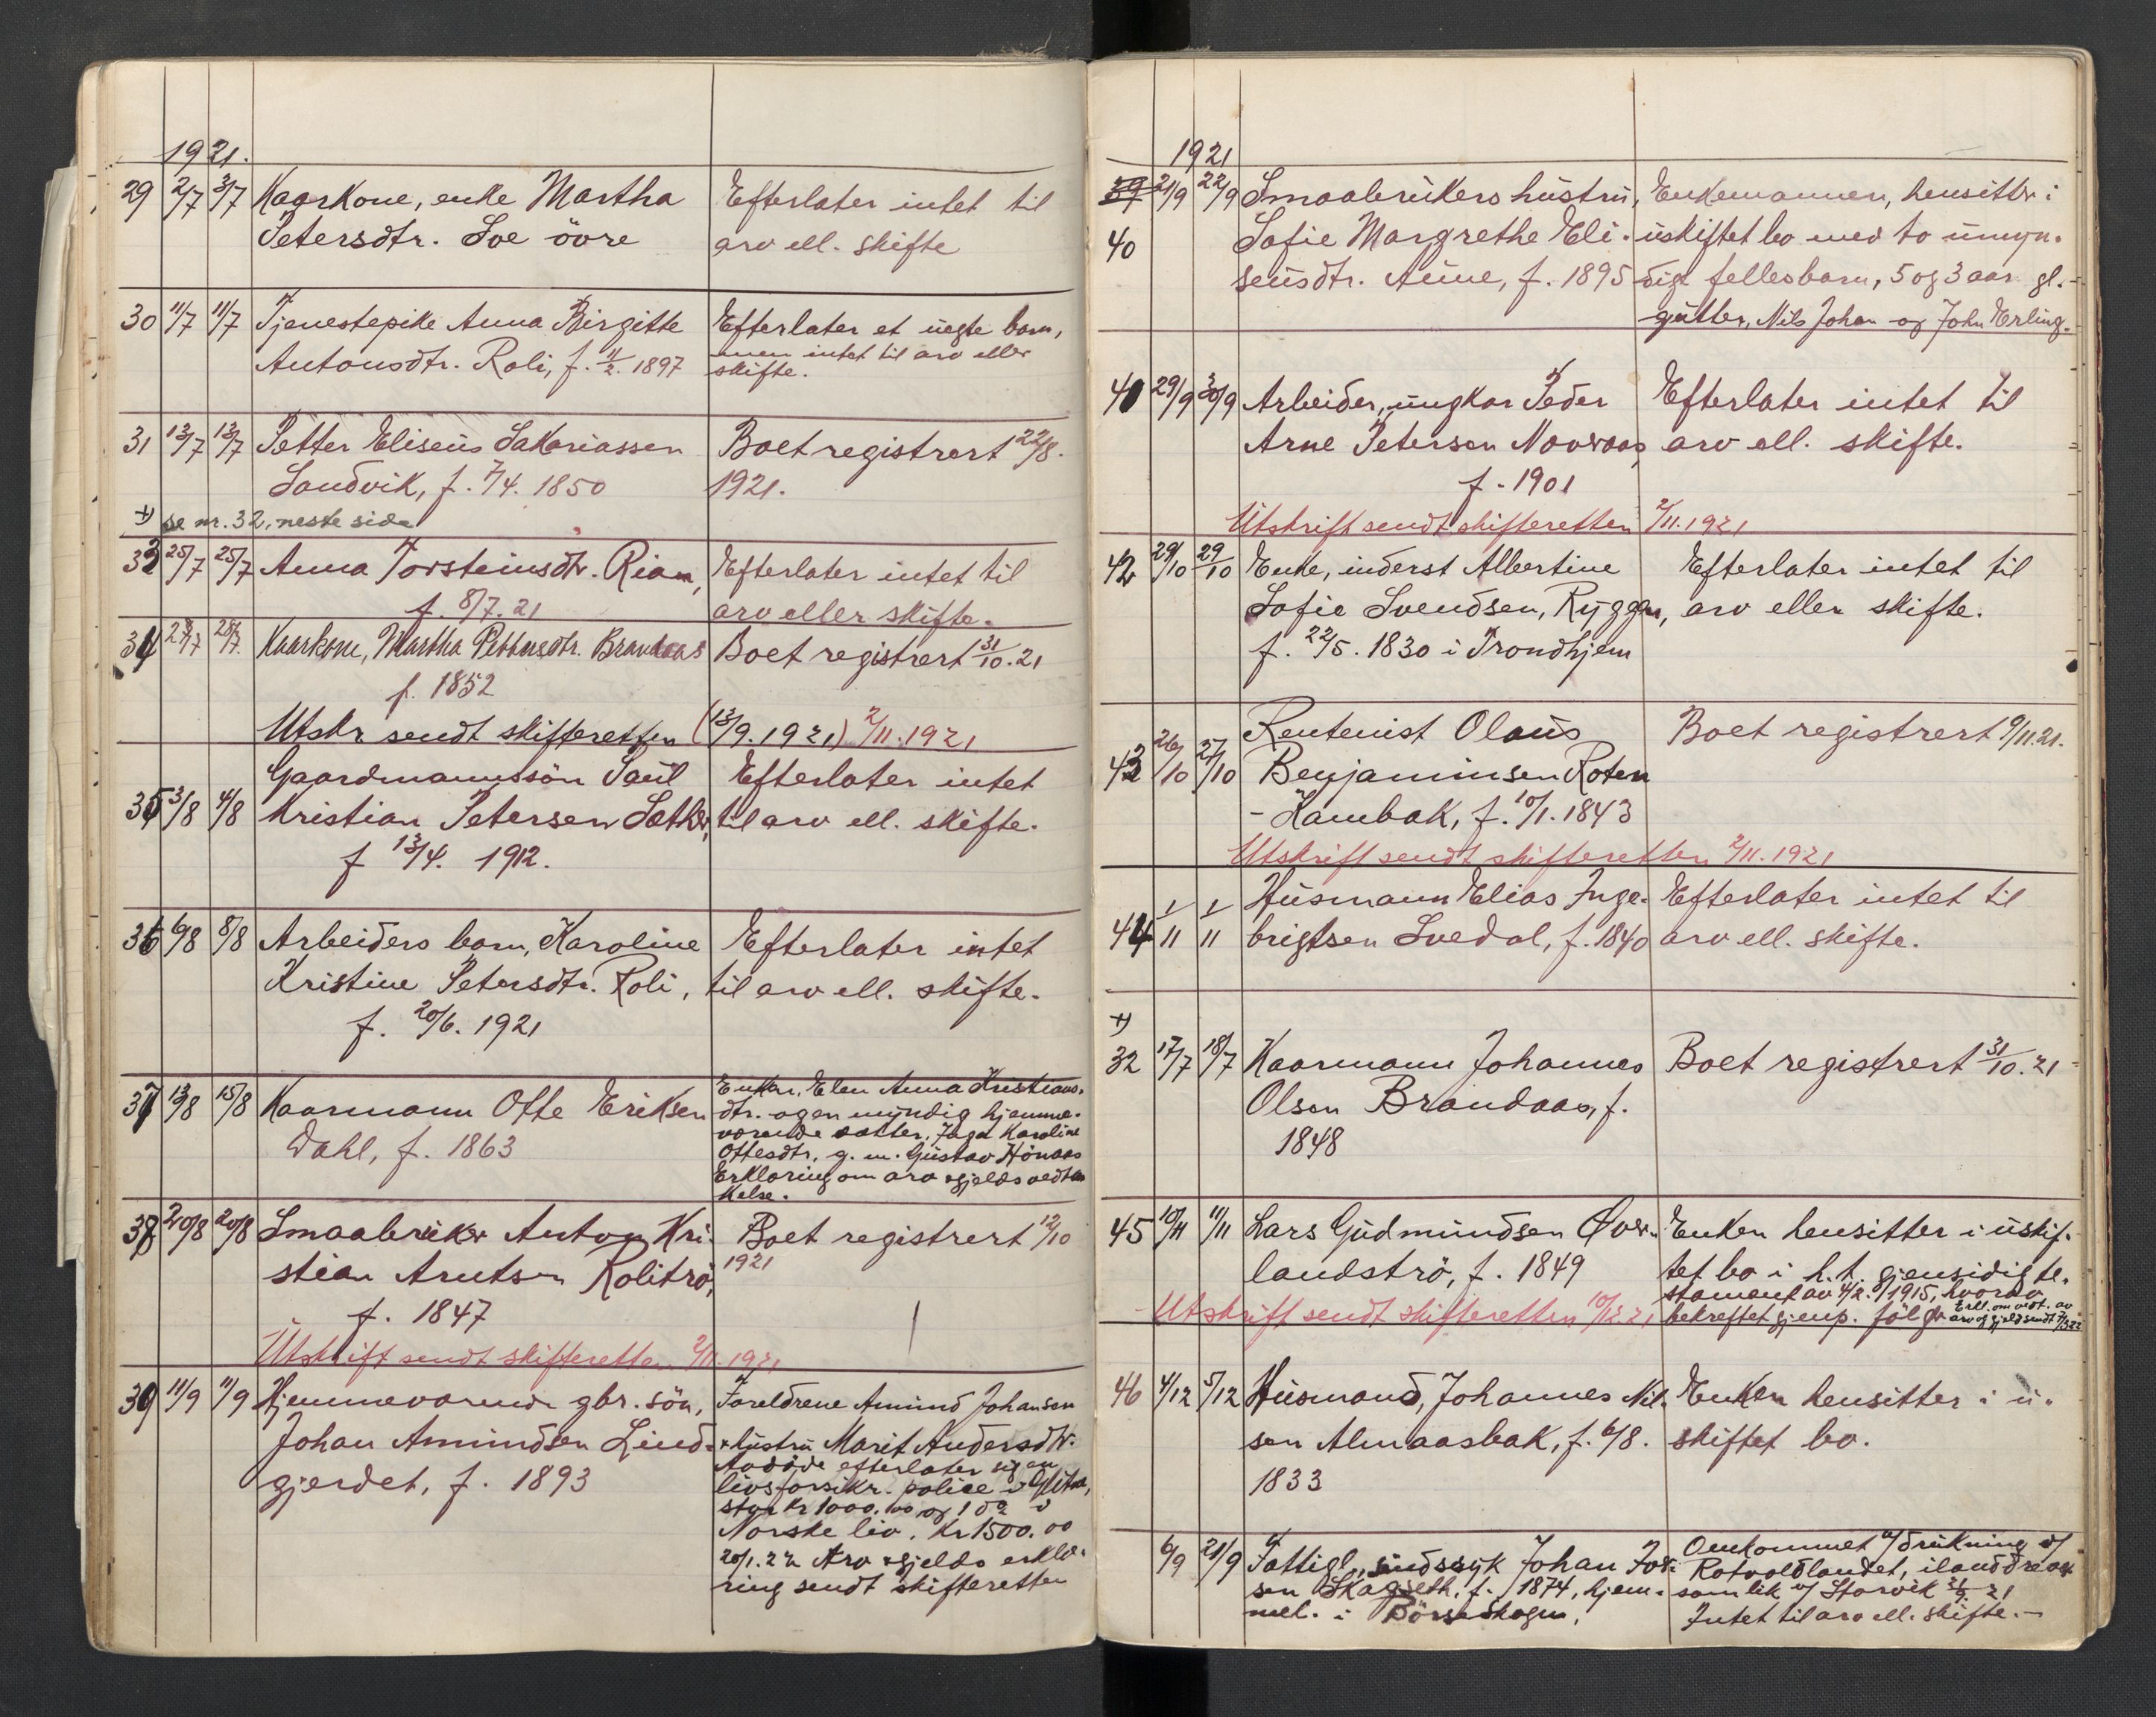 1921.
29 2/7 3/7 Kaarkone, enke Martha Efterlater intet til
Petersdtr. Loe övre arv ell. skifte
30 11/7 11/7 Tjenestepike Anna Birgitte Efterlater et uegte barn,
Antonsdtr. Roli, f. 11/2. 1897 men intet til arv eller
skifte.
31 13/7 13/7 Petter Eliseus Sakariassen Boet registrert 22/8.
Sandvik, f. 7/4. 1850 1921.
+) se nr. 32, neste side
33 25/7 25/7 Anna Torsteinsdtr. Rian, Efterlater intet til
f. 8/7. 21 arv eller skifte.
34 28/7 28/7. Kaarkone, Martha Pettersdtr. Brandaas Boet registrert 31/10. 21
f. 1852
Utskr sendt skifteretten (13/9. 1921) 2/11. 1921
Gaardmannssön Paul Efterlater intet
35 3/8 4/8 Kristian Petersen Sæther, til arv ell. skifte.
f 13/4. 1912.
36 6/8 8/8 Arbeiders barn, Karoline Efterlater intet
Kristine Petersdtr. Roli, til arv ell. skifte.
f. 20/6. 1921
37 13/8 15/8 Kaarmann Otte Eriksen Enken, Elen Anna Kristians-
Dahl, f. 1863 dtr. og en myndig hjemme-
værende datter, Inga Karoline
Ottesdtr, g. m. Gustav Hönaas
Erklæring om arv & gjelds vedta
kelse.
38 20/8 20/8 Smaabruker Anton Kri- Boet registrert 12/10
stian Arntsen Rolitrö, 1921
f. 1847
Utskrift sendt skifteretten 2/11. 1921
39 11/9 11/9 Hjemmeværende gbr. sön, Foreldrene Amund Johansen
Johan Amundsen Lind- & hustru Marit Andersdtr.
gjerdet, f. 1893 Avdöde efterlater sig en
livsforsikr. police i Gjitna,
stor kr 1000.00 og 1 do i
Norske liv. Kr 1500.00
20/1. 22 Arv & gjelds erklæ-
ring sendt skifteretten
1921
39 21/9 22/9 Smaabrukers hustru, Enkemannen, hensitter i
40 Sofie Margrethe Eli- uskiftet bo med to umyn-
seusdtr. Aune, f. 1895 dige fellesbarn, 5 og 3 aar gl.
gutter, Nils Johan og John Erling.
41 29/9 30/9 Arbeider, ungkar Peder Efterlater intet til
Arne Petersen Navraas, arv ell. skifte.
f. 1901
Utskrift sendt skifteretten 2/11. 1921
42 29/10 29/10 Enke, inderst Albertine Efterlater intet til
Sofie Svendsen, Ryggen, arv eller skifte.
f. 22/5. 1830 i Trondhjem
Rentenist Olaus Boet registrert 9/11. 21.
43 26/10 27/10 Benjaminsen Roten
-Hambak, f. 10/1. 1843
Utskrift sendt skifteretten 2/11. 1921
Husmann Elias Inge- Efterlater intet til
44 1/11 1/11 brigtsen Svedal, f. 1840 arv ell. skifte.
+)
32 17/7 18/7 Kaarmann Johannes Boet registrert 31/10. 21
Olsen Brandaas, f.
1848
45 10/11 11/11 Lars Gudmundsen Over- Enken hensitter i uskif-
landströ, f. 1849 tet bo i h.t. gjensidig te-
stament av 4/2. 1915, hvorav
Utskrift sendt skifteretten 10/12 21 bekreftet gjenp. fölger Erkl. om vedt. av
arv og gjeld sendt 7/3 22
46 4/12 5/12 Husmand, Johannes Nil- Enken hensitter i u-
sen Almaasbak, f. 6/8. skiftet bo.
1833
6/9 21/9 Fattigl., sindssyk Johan Omkommet v/ drukning v/
sen Skagseth. f. 1874, hjem- Rotvoldlandet, ilanddreve
mel. i Börseskogen. som lik v/ Storvik 21
Intet til arv ell. skifte.-